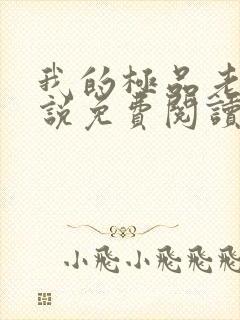 我的極品老
說免費閱讀
小飛小飛飛飛